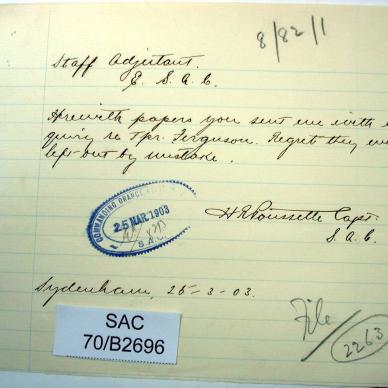 8/82/1
Staff Adjutant.
E. S. A. C.
Herewith papers you sent me with
quiry re Tpr. Ferguson. Regret they we
left out by mistake.
COMMANDING ORANGE
25 MAR. 1903
S.A.C.
H Poussette Capt.
S. A. C.
Sydenham, 25-3-03.
SAC
70/B2696
File
2263